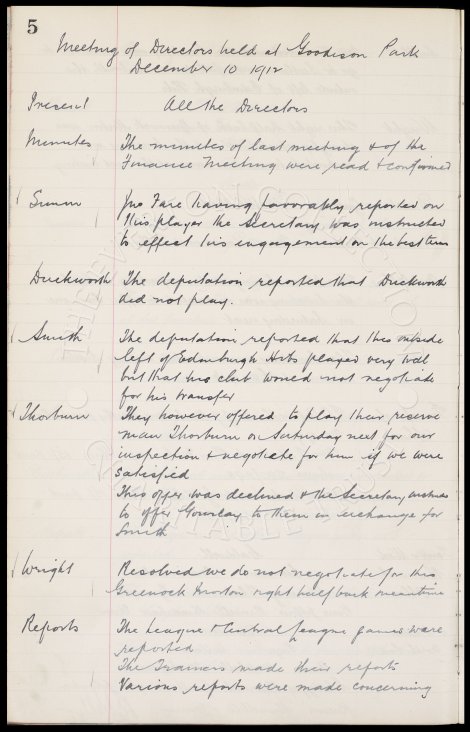 5
Meeting of Directors held at Goodison Park
December 10 1912
Present All the Directors
Minutes The minutes of last meeting & of the
Finance Meeting were read & confirmed
Jno Fare having favorably reported on
this player the Secretary was instructed
to effect his engagement on the best term
Duckworth The deputation reported that Duckworth
did not play.
Smith The deputation reported that this outside
left of Edinburgh Hibs played very well
but that his club would not negotiate
for his transfer
Thorburn They however offered to play their reserve
man Thorburn on Saturday next for our
inspection & negotiate for him if we were
satisfied
This offer was declined & the Secretary
to offer Gourlay to them in exchange for
Smith
Wright Resolved we do not negotiate for this
Greenock Morton right half back meantime
Reports The League & Central League games were
reported
The Trainers made their reports
Various reports were made concerning